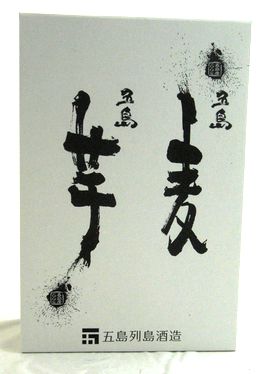 五島
麦
五島
芋
五島列島酒造